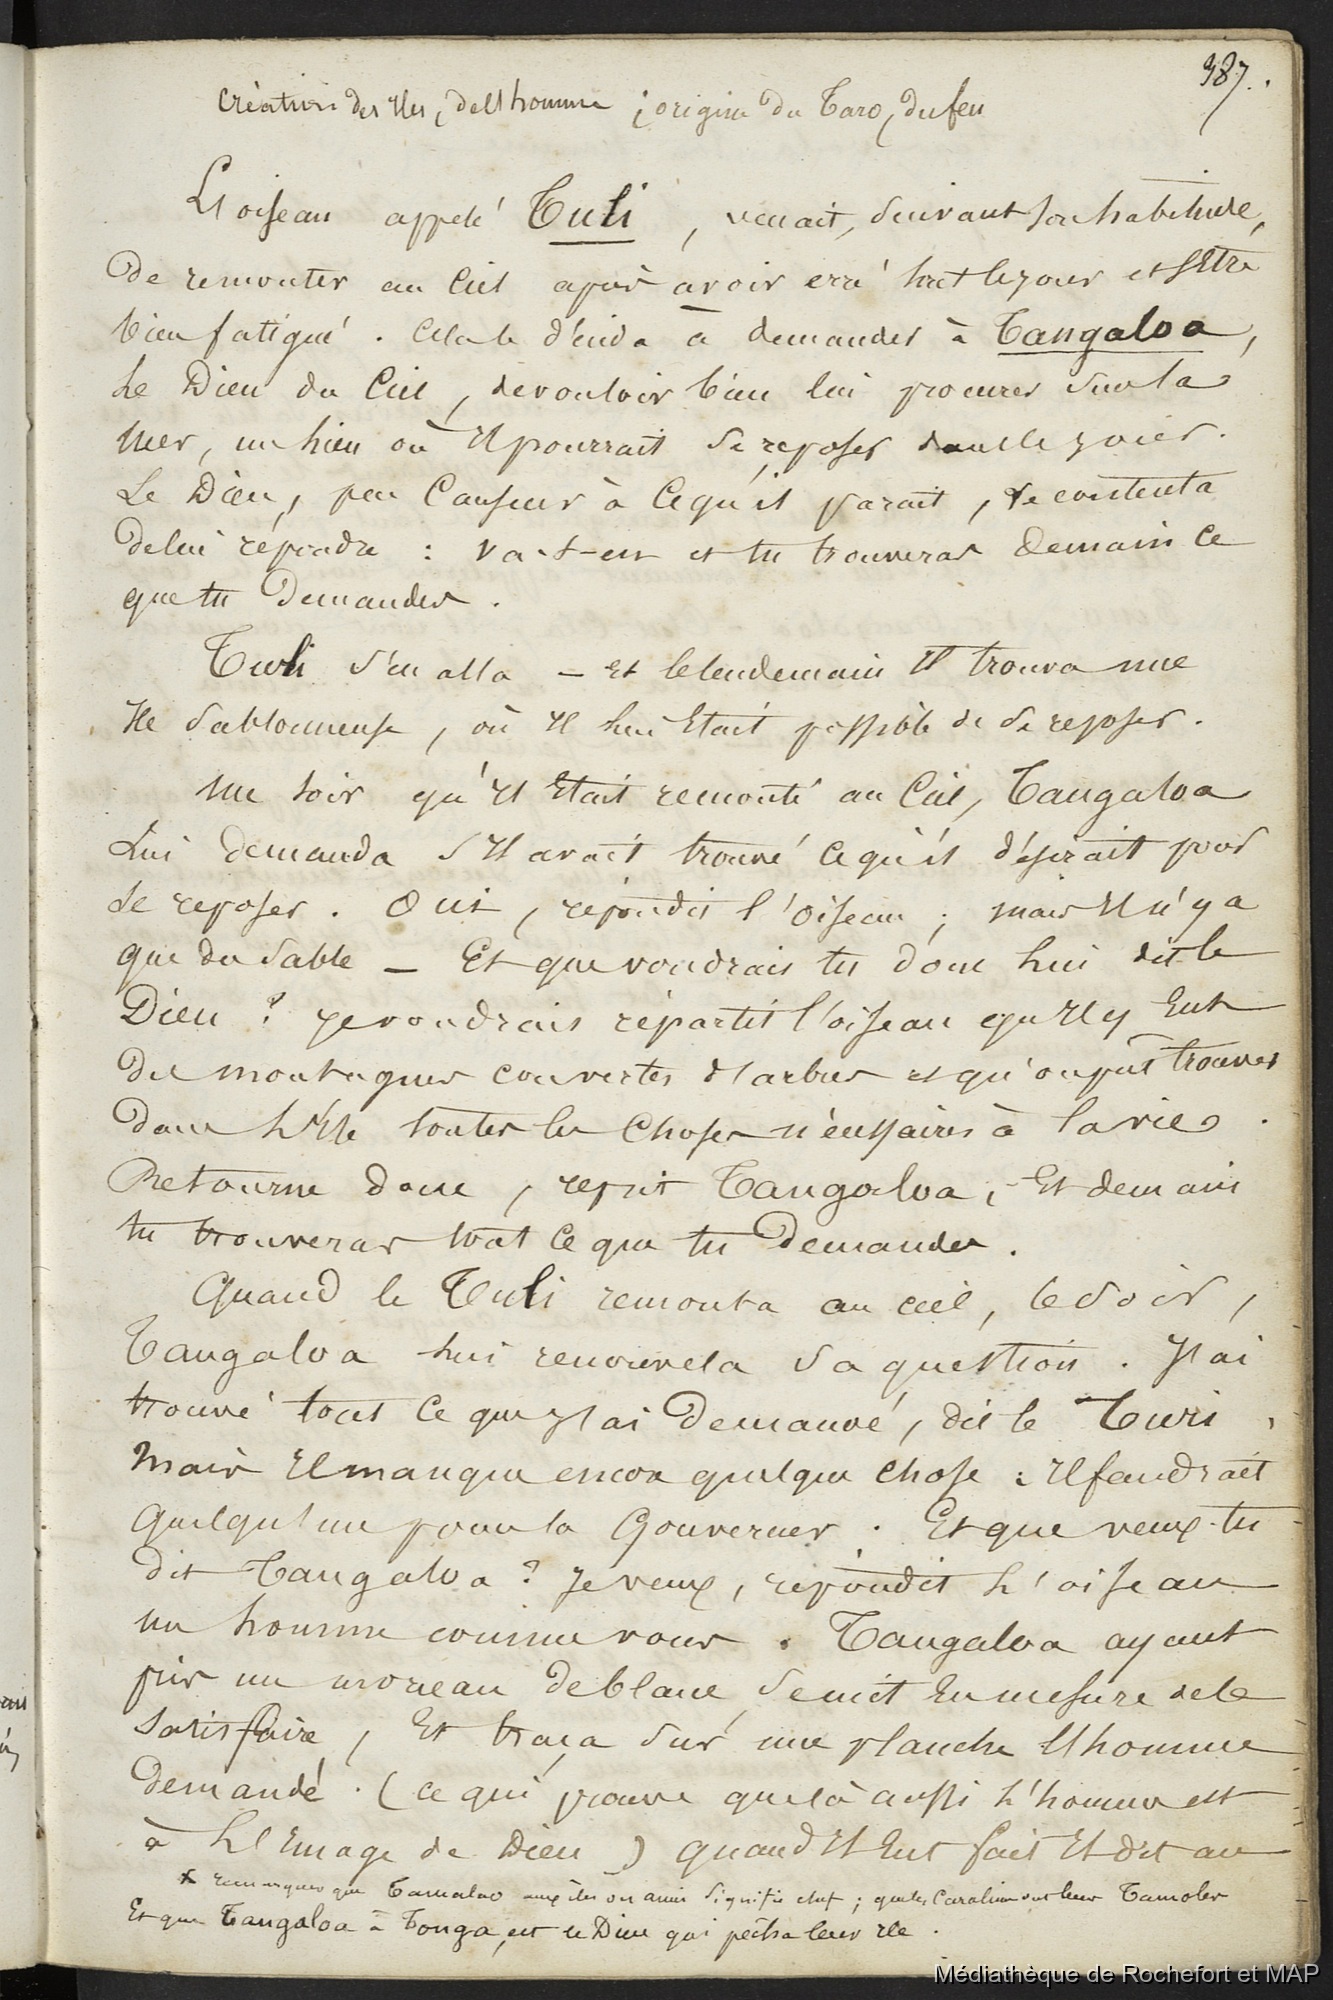 387.
Création des Iles, de l'homme ; origine du Taro, du feu
L'oiseau appelé Tuli, venait, suivant son habitude,
de remonter au Ciel après avoir erré tout le jour et s'être
bien fatigué. Cela le décida à demander à Tangaloa,
le Dieu du Ciel, de vouloir bien lui procurer sur la
mer, un lieu où il pourrait se reposer dans le jour.
Le Dieu, peu Causeur à ce qu'il parait, se contenta
de lui répondre : va-t-en et tu trouveras demain ce
que tu demandes.
Tuli s'en alla — et le lendemain il trouva une
Ile sablonneuse, où il lui était possible de se reposer.
Un soir qu'il était remonté au Ciel, Tangaloa
lui demanda s'il avait trouvé ce qu'il désirait pour
se reposer. Oui, répondit l'oiseau ; mais il n'y a
que du sable — Et que voudrais tu donc lui dit le
Dieu ? je voudrais répartit l'oiseau qu'il y eut
des montagnes couvertes d'arbres et qu'on pût trouver
dans l'île toutes les choses nécessaires à la vie.
Retourne donc, reprit Tangaloa, et demain
tu trouveras tout ce que tu demandes.
Quand le Tuli remonta au ciel, le soir,
Tangaloa lui renouvela sa question. J'ai
trouvé tout ce que j'ai demandé, dit le Turi,
mais il manque encore quelque chose : il faudrait
quelqu'un pour la Gouverner. Et que veux-tu
dit Tangaloa ? Je veux, répondit l'oiseau
un homme comme vous. Tangaloa ayant
pris un morceau de blanc, se mit en mesure de le
satisfaire, et traça sur une planche l'homme
demandé. (ce qui prouve que là aussi l'homme est
à l'image de Dieu) quand il eut fait il dit au
* remarquer que Tamaloa aux îles signifie chef ; que les Carolins ont leurs Tamoles
Et que Tangaloa à Tonga, est le Dieu qui pêcha leur île.
Médiathèque de Rochefort et MAP